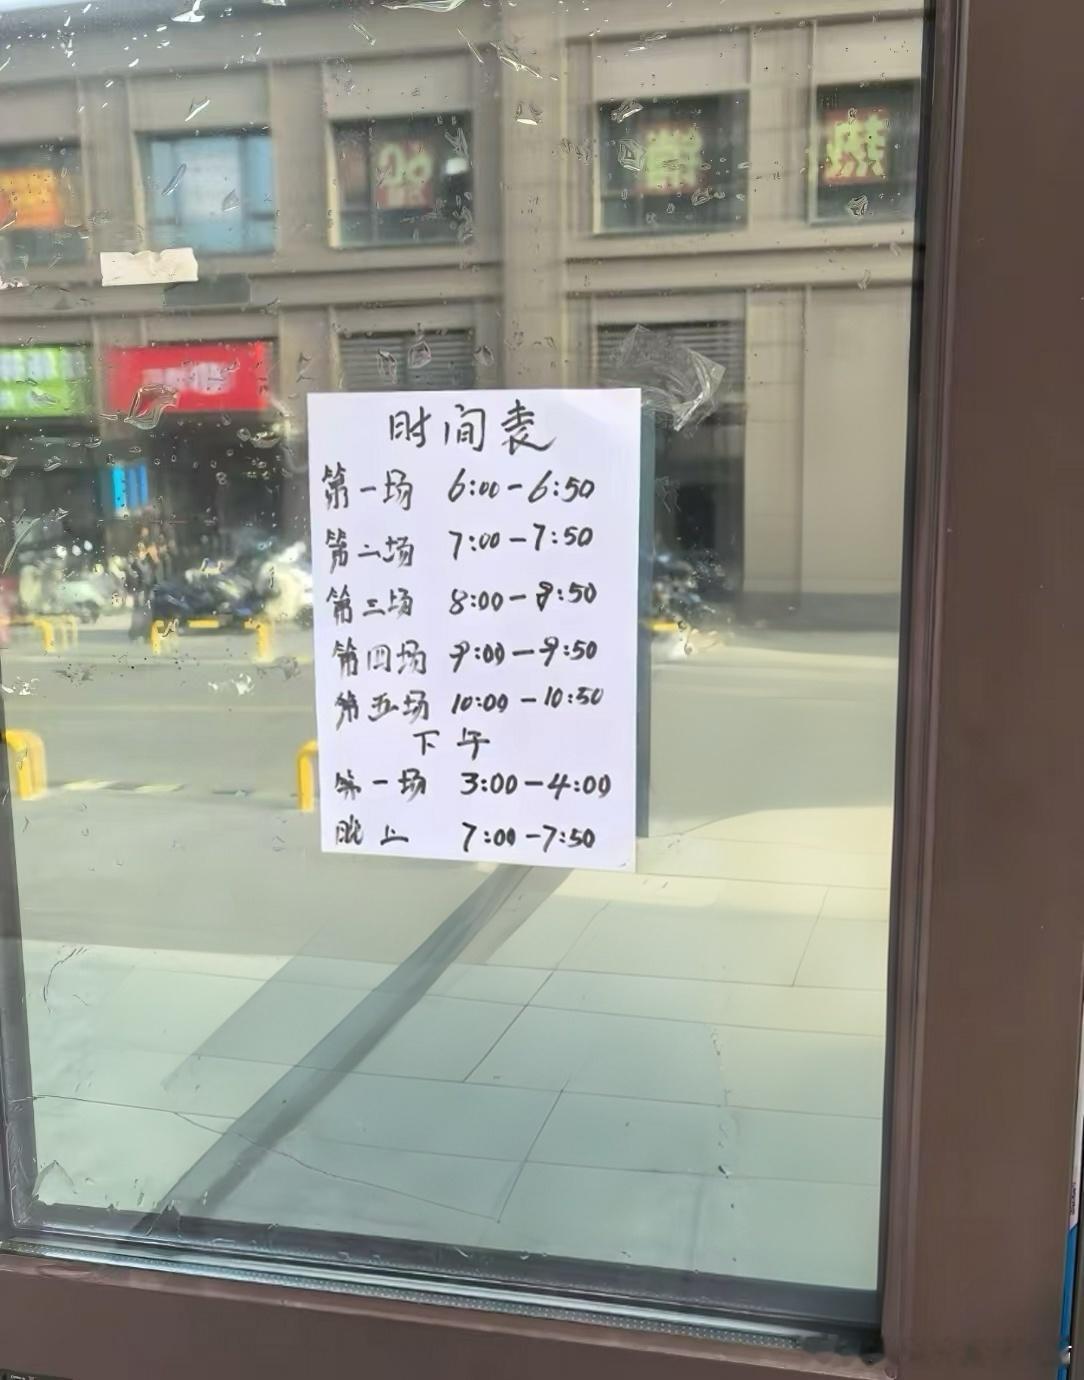 时间表
第一场 6:00-6:50
第二场 7:00-7:50
第三场 8:00-8:50
第四场 9:00-9:50
第五场 10:00-10:50
下午
第一场 3:00-4:00
晚上 7:00-7:50